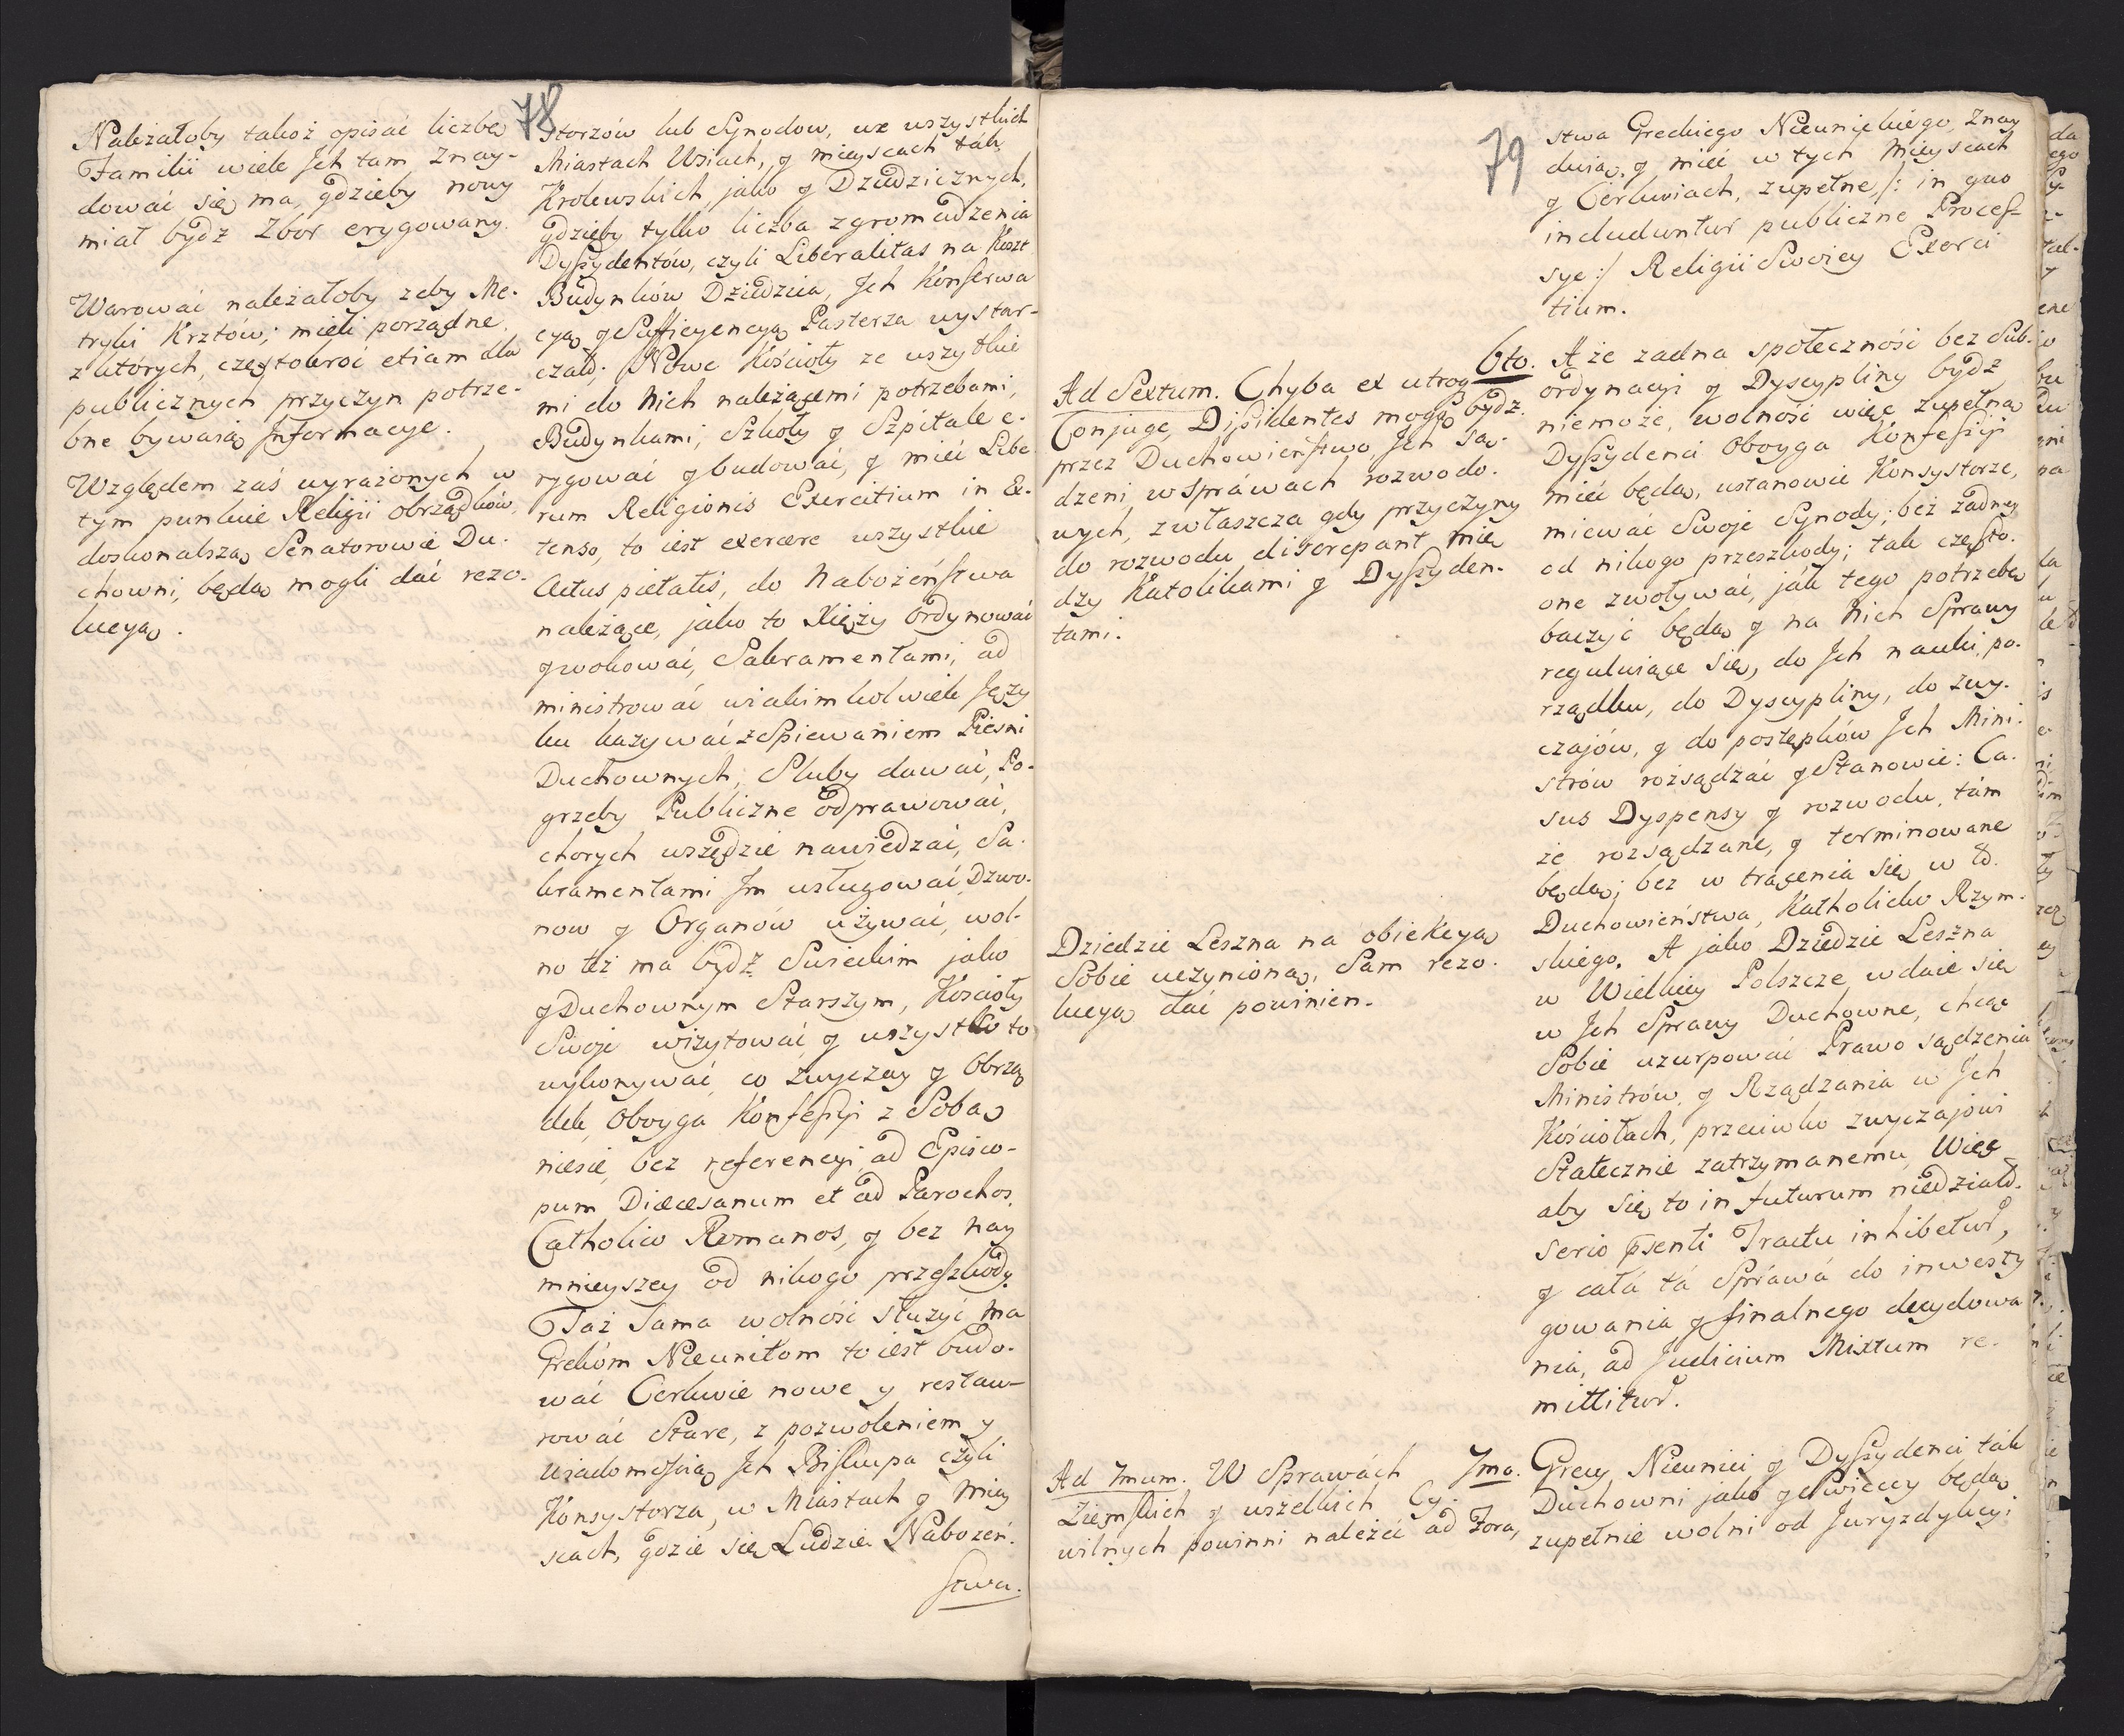 78
Należałoby takoż opisać liczbę
Familii wiele Ich tam znay-
dować się ma, gdzieby nowy
miał bydź Zbor erygowany.
Warować należałoby żeby Me-
tryki Krztów; mieli porządne,
z których, częstokroć etiam dla
publicznych przyczyn potrze-
bne bywaią Informacye.
Względem zaś wyrażonych w
tym punkcie Religii obrządków,
doskonalszą Senatorowie Du-
chowni, będą mogli dać rezo-
lucyą.
storzów lub Synodow, we wszystkich
Miastach Wsiach, y mieyscach ták
Krolewskich, jako y Dziedzicznych,
gdzieby tylko liczba zgromadzenia
Dyssydentów, czyli Liberalitas na Koszt
Budynków Dziedzica, Ich Konserwa
cyą y Sufficyencyą Pasterza wystar-
czała; Nowe Kościoły ze wszytkie
mi do Nich należącemi potrzebami,
Budynkami, Szkoły y Szpitale e-
rygować y budować, y mieć Libe
rum Religionis Exercitium in Ex-
tenso, to iest exercere wszystkie
Actus pietatis, do Nabożeństwa
należące, jako to Xięży Ordynować
y wokować, Sakramentami, ad
ministrować wiakimkolwiek Języ
ku kazywać z Spiewaniem Piesni
Duchownych, Sluby dawać, Po-
grzeby Publiczne odprawować,
chorych wszędzie nawiedzać, Sa-
kramentami Im usługować, Dzwo-
now y Organów używać, wol-
no też ma bydź Swieckim jako
y Duchownym Starszym, Kościoły
Swoje wizytować y wszystko to
wykonywać, co Zwyczay y Obrzą
dek, Oboyga Konfessyi z Sobą
niesie, bez referencyi ad Episco-
pum Diæcesanum et ad Parochos
Catholico Romanos, y bez Nay
mnieyszey od nikogo przeszkody.
Taż Sama wolność służyć ma
Grekóm Nieunitom to iest budo-
wać Cerkwie nowe y restau-
rować Stare, z pozwoleniem y
wiadomością Ich Biskupa czyli
Konsystorza, w Miastach y Miey
scach, gdzie się Ludzie Nabożeń-
stwa.
79
Ad Sextum. Chyba ex utroq
Conjuge, Dissidentes mogą bydź
przez Duchowieństwo Ich są-
dzeni, w sprawach rozwodo-
wych, zwłaszcza gdy przyczyny
do rozwodu discrepant mię
dzy Katolikami y Dyssyden-
tami.
Dziedzic Leszna na obiekcyą
Sobie uczynioną, Sam rezo-
lucyą dać powinien.
Ad 7mum. W Sprawách
Ziemskich y wszelkich Cy-
wilnych powinni należeć ad Fora,
stwa Greckiego Nieunickiego, Znay
duią, y mieć w tych Mieyscach
y Cerkwiach, zupełne /: in quo
includuntur publiczne Proces-
sye :/ Religii Swoiey Exerci
tium.
6to. A że żadna społeczność bez Sub-
ordynacyi y Dyscypliny bydź
niemoże, wolność więc zupełną
Dyssydenci Oboyga Konfessyi
mieć będą, ustanowić Konsystorze,
miewać Swoje Synody, beż żadney
od nikogo przeszkody; tak często-
one zwoływać, ják tego potrzebę
baczyć będą y na Nich Sprawy
reguluiące się, do Ich nauki, po-
rządku, do Dyscypliny, do zwy-
czajów, y do postępków Ich Mini-
strów rozsądzać y Stanowić: Ca-
sus Dyspensy y rozwodu, tám
że rozsądzane, y terminowane
będą; bez w trącenia się w to
Duchowieństwa, Katholicko Rzym-
skiego. A jako Dziedzic Leszna
w Wielkiey Polszcze, wdaie się
w Ich Sprawy Duchowne, chcąc
Sobie uzurpować Prawo sądzenia
Ministrów, y Rządzania w Ich
Kościołach, przeciwko zwyczajowi
Statecznie zatrzymanemu, Więc
aby się to in futurum niedziało.
serio psenti Tractu inhibetur,
y cała tá Spráwá do inwesty
gowania y finalnego decydowa
nia, ad Judicium Mixtum re-
mittitur.
7mo. Grecy Nieunici y Dyssydenci ták
Duchowni jako y Swieccy będą
zupełnie wolni od Juryzdykcyi